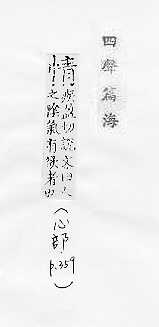 四聲篇海
情疾盈切説文曰人
之陰氣有欲者也
（心部
p.359）